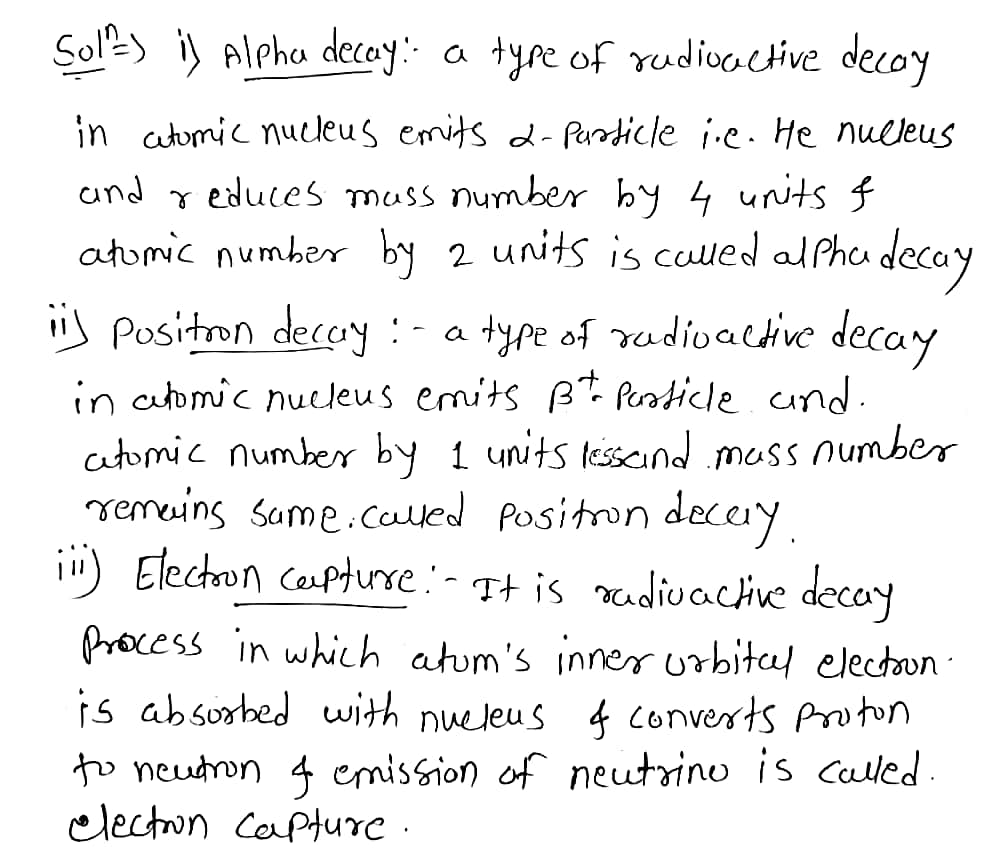 Solⁿ=> i) Alpha decay:- a type of radioactive decay
in atomic nucleus emits α-Particle i.e. He nucleus
and reduces mass number by 4 units &
atomic number by 2 units is called alpha decay
ii) Positron decay :- a type of radioactive decay
in atomic nucleus emits β⁺ Particle and.
atomic number by 1 units less and mass number
remains same. called Positron decay.
iii) Electron capture:- It is radioactive decay
Process in which atom's inner orbital electron
is absorbed with nucleus & converts Proton
to neutron & emission of neutrino is called.
electron capture.